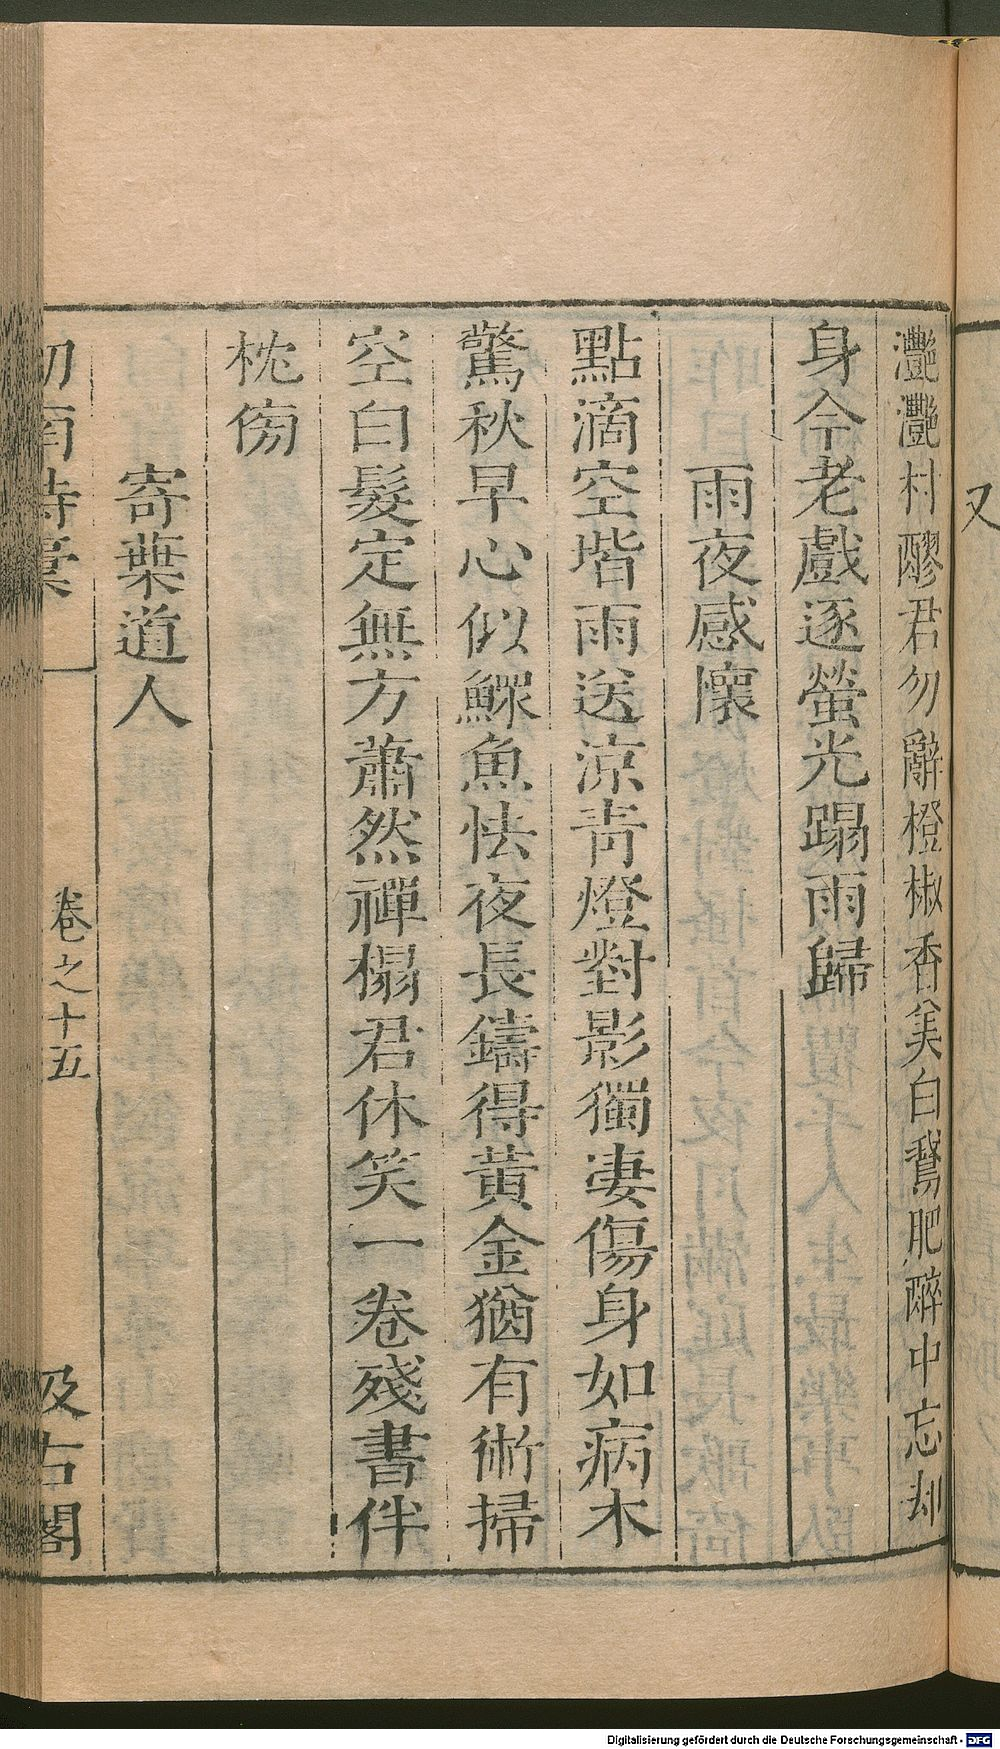 又
灔灔村醪君勿辭橙椒香美白鵞肥醉中忘却
身今老戲逐螢光蹋雨歸
雨夜感懷
點滴空堦雨送涼靑燈對影獨凄傷身如病木
驚秋早心似鰥魚怯夜長鑄得黃金猶有術掃
空白髮定無方蕭然禪榻君休笑一卷殘書伴
枕傍
寄葉道人
劒南詩稾 卷之十五 汲古閣
Digitalisierung gefördert durch die Deutsche Forschungsgemeinschaft - DFG